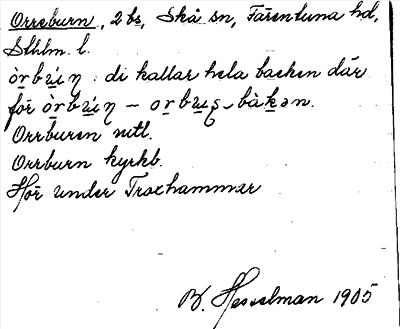 Orreburn, 2 bs, Skå sn, Färentuna hd,
Sthlm. l.
òrbu̲i̲ŋ : di kallar hela backen där
för òrbu̲i̲ŋ – orbu̲i̲s-bàkən.
Orrburen mtl.
Orrburn kyrkb.
Hör under Troxhammar
B. Hesselman 1905